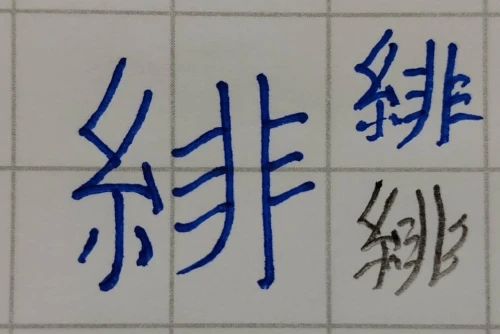 緋
緋
緋